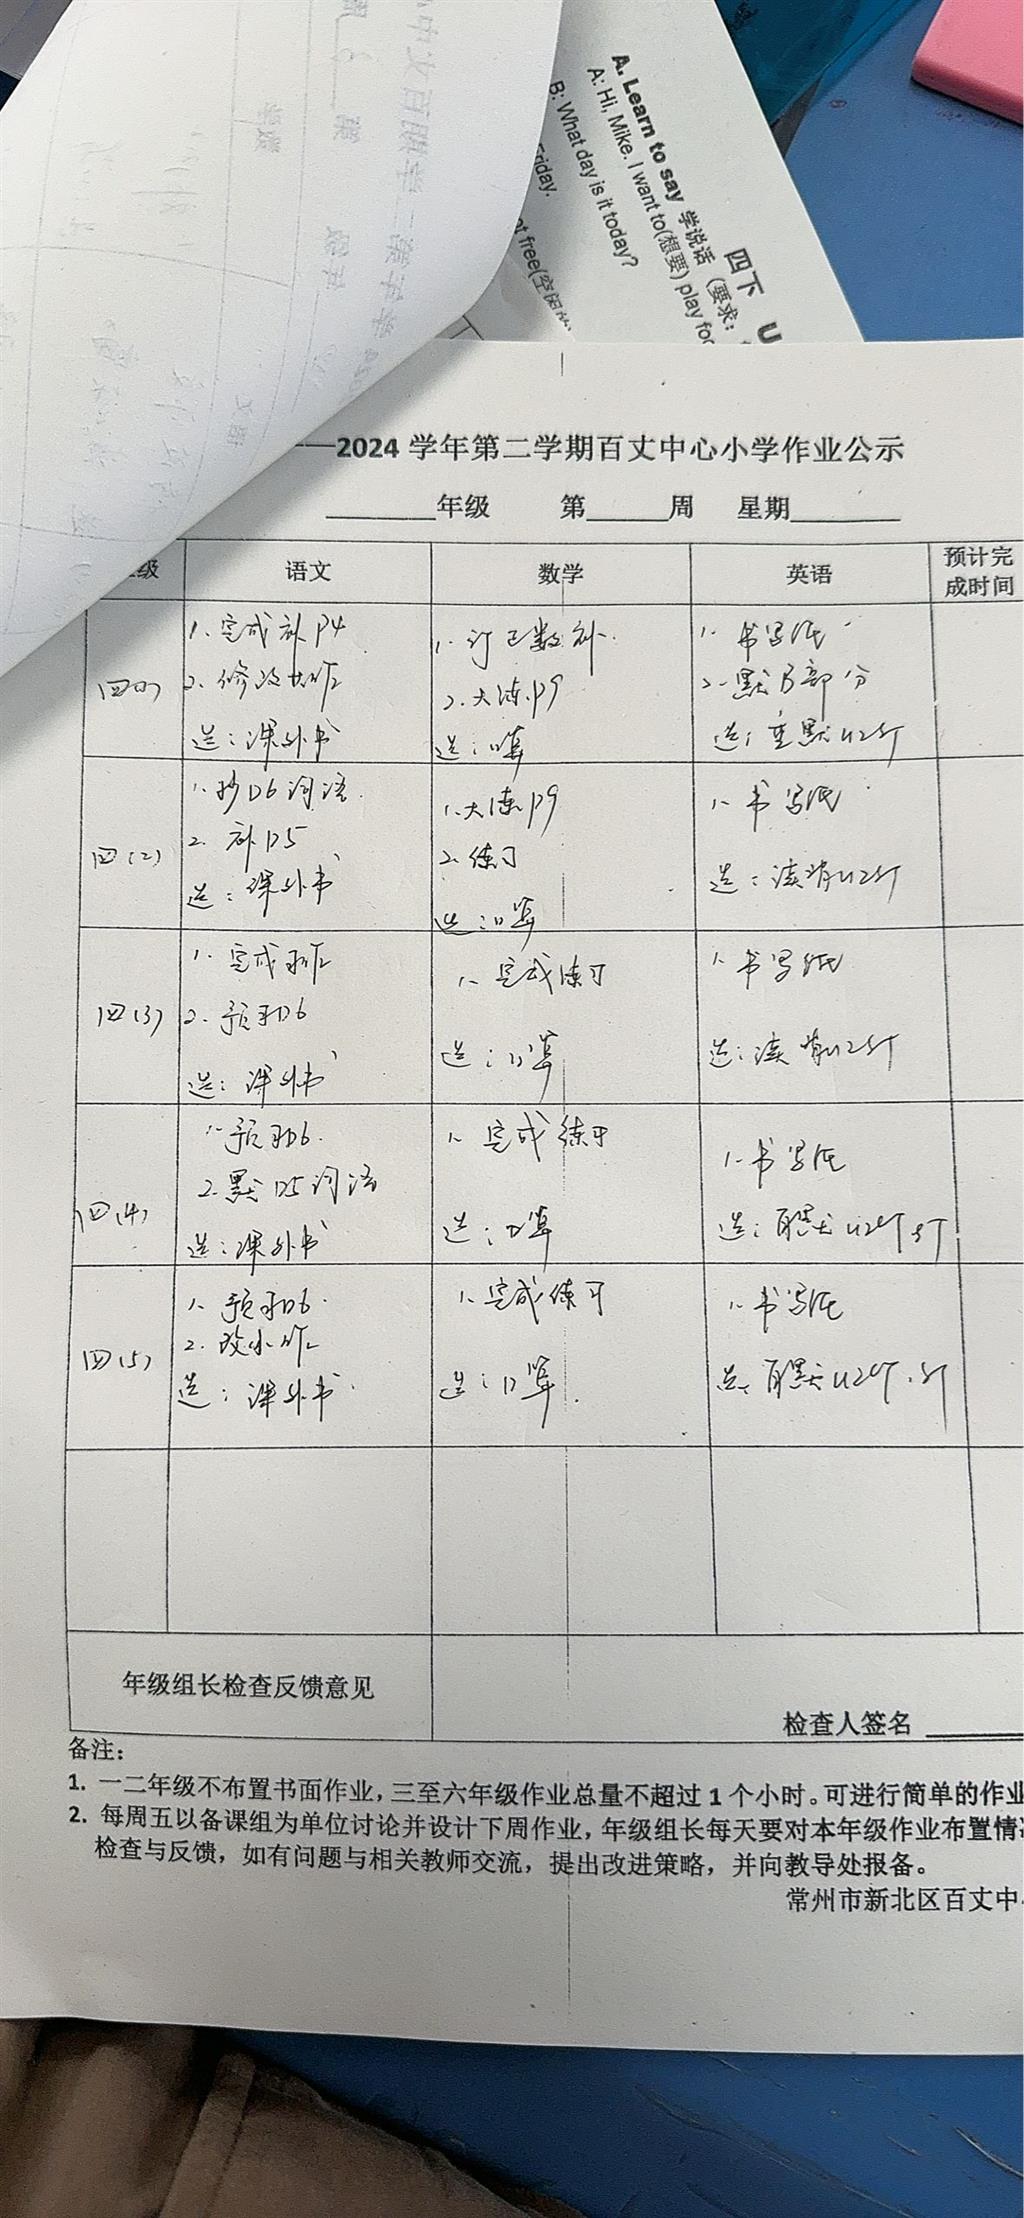 A. Learn to say 学说话 (要求:
A: Hi, Mike. I want to(想要) play foo
B: What day is it today?
Friday.
t free(空闲的
四下 U
—2024 学年第二学期百丈中心小学作业公示
______年级 第______周 星期______
级 语文 数学 英语 预计完成时间
四(1)
1、完成补P4
2、修改大作
选:课外书
1、订正数补
2、大练P9
选:口算
1、书写纸
2、默B部分
选:重默U2ST
四(2)
1、抄D6词语
2、补D5
选:课外书
1、大练P9
2、练习
选:口算
1、书写纸
选:读背U2ST
四(3)
1、完成习作
2、预习D6
选:课外书
1、完成练习
选:口算
1、书写纸
选:读背U2ST
四(4)
1、预习D6
2、默D5词语
选:课外书
1、完成练习
选:口算
1、书写纸
选:自默U2CT ST
四(5)
1、预习D6
2、改小作
选:课外书
1、完成练习
选:口算
1、书写纸
选:自默U2CT、ST
年级组长检查反馈意见
检查人签名
备注:
1. 一二年级不布置书面作业,三至六年级作业总量不超过 1 个小时。可进行简单的作业
2. 每周五以备课组为单位讨论并设计下周作业,年级组长每天要对本年级作业布置情
检查与反馈,如有问题与相关教师交流,提出改进策略,并向教导处报备。
常州市新北区百丈中